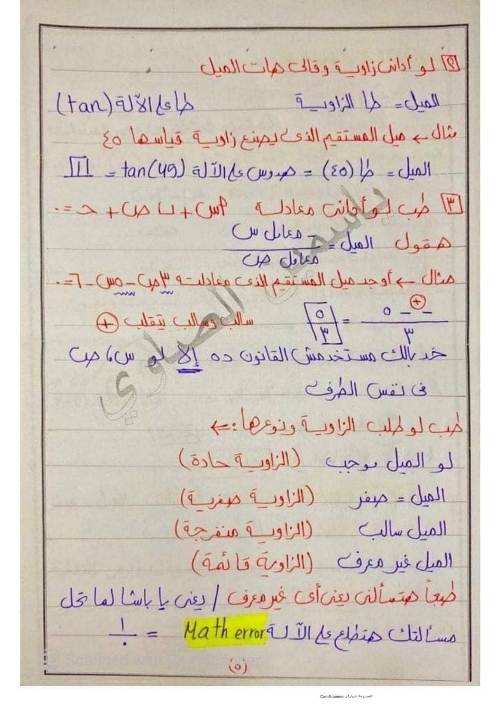 ٢ لو أدانى زاوية وقالى هات الميل
الميل = طا الزاوية طا على الآلة (tan)
مثال ← ميل المستقيم الذى يصنع زاوية قياسها ٤٥
الميل = طا (٤٥) = هدوس على الآلة tan(45) = 1
٣ طب لو أدانى معادلة أس + ب ص + حـ = ٠
هقول الميل = - معامل س / معامل ص
مثال ← أوجد ميل المستقيم الذى معادلته ٣ص - ٥س - ٦ = ٠
- - ٥ / ٣ = ٥ / ٣ سالب وسالب بتقلب +
خد بالك مستخدمش القانون ده إلا لو س، ص
فى نفس الطرف
طب لو طلب الزاوية ونوعها: ←
لو الميل موجب (الزاوية حادة)
الميل = صفر (الزاوية صفرية)
الميل سالب (الزاوية منفرجة)
الميل غير معرف (الزاوية قائمة)
طبعاً هتسألنى يعنى أى غير معرف / يعنى يا باشا لما تحل
مسألتك هتطلع على الآلة Math error = ١ / ٠
(٥)
ياسمين الصاوي